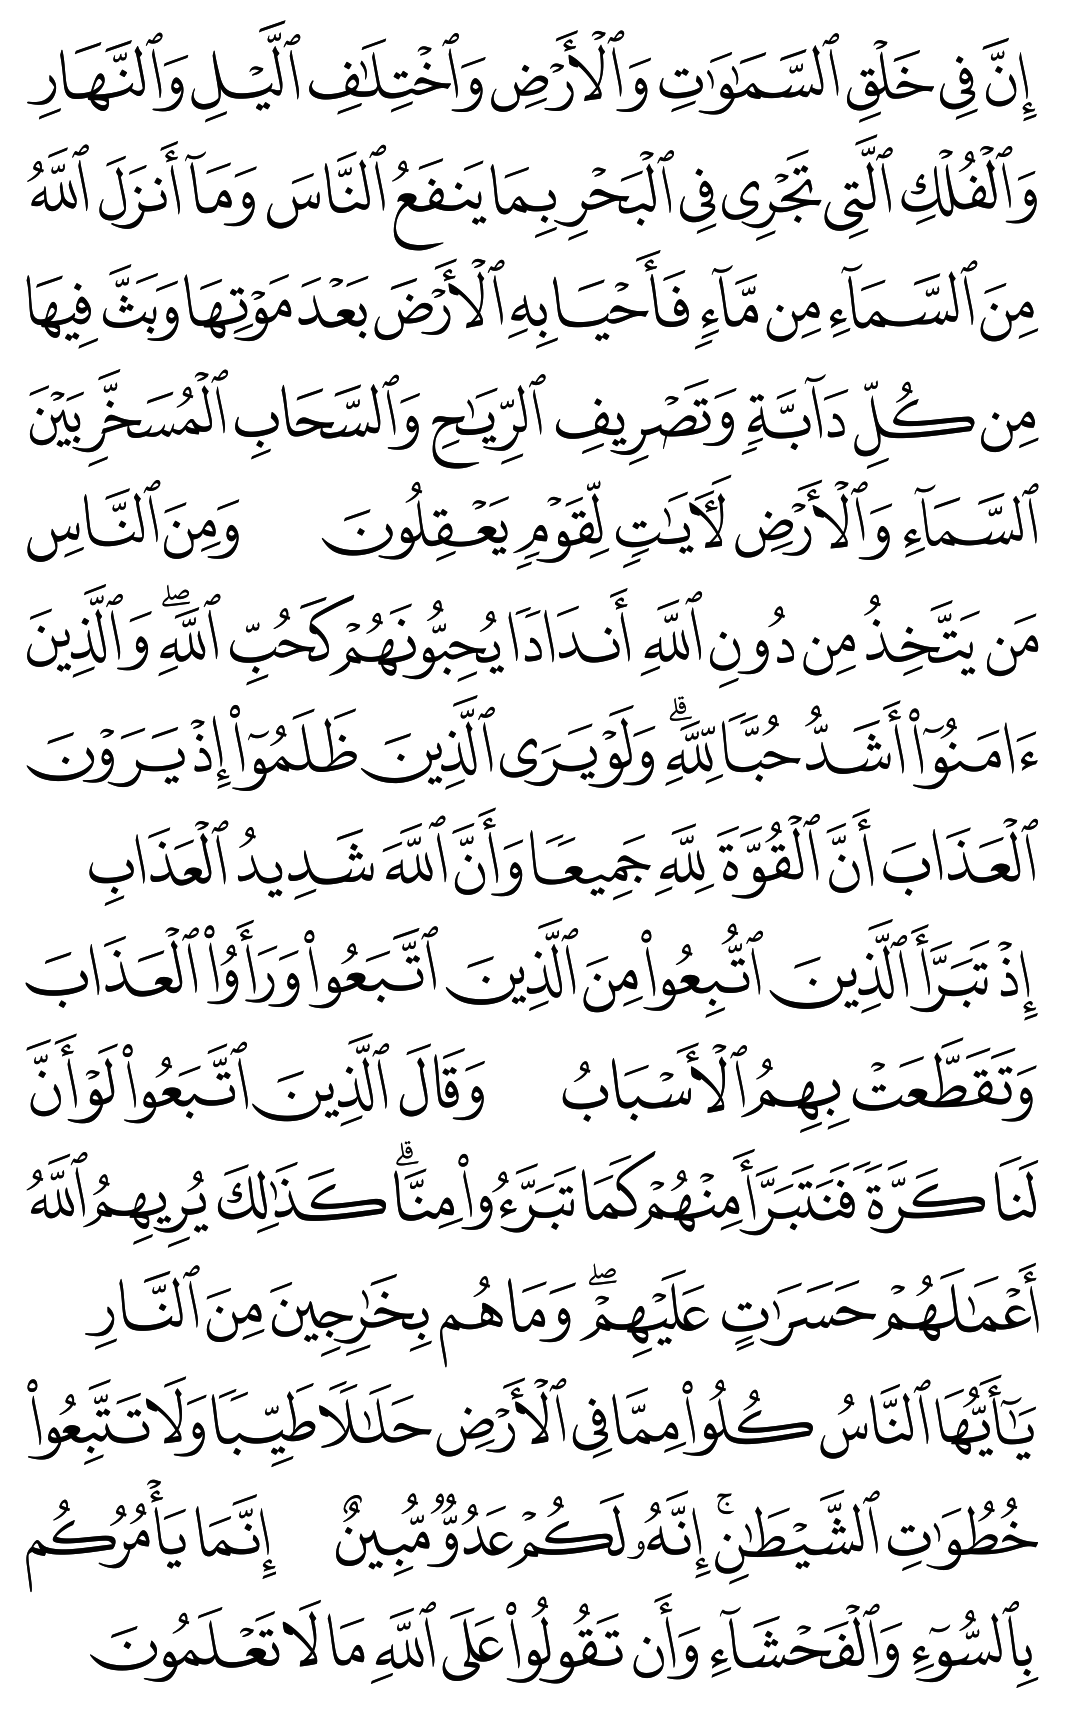 إِنَّ فِي خَلۡقِ ٱلسَّمَٰوَٰتِ وَٱلۡأَرۡضِ وَٱخۡتِلَٰفِ ٱلَّيۡلِ وَٱلنَّهَارِ
وَٱلۡفُلۡكِ ٱلَّتِي تَجۡرِي فِي ٱلۡبَحۡرِ بِمَا يَنفَعُ ٱلنَّاسَ وَمَآ أَنزَلَ ٱللَّهُ
مِنَ ٱلسَّمَآءِ مِن مَّآءٖ فَأَحۡيَا بِهِ ٱلۡأَرۡضَ بَعۡدَ مَوۡتِهَا وَبَثَّ فِيهَا
مِن كُلِّ دَآبَّةٖ وَتَصۡرِيفِ ٱلرِّيَٰحِ وَٱلسَّحَابِ ٱلۡمُسَخَّرِ بَيۡنَ
ٱلسَّمَآءِ وَٱلۡأَرۡضِ لَأٓيَٰتٖ لِّقَوۡمٖ يَعۡقِلُونَ وَمِنَ ٱلنَّاسِ
مَن يَتَّخِذُ مِن دُونِ ٱللَّهِ أَندَادٗا يُحِبُّونَهُمۡ كَحُبِّ ٱللَّهِۖ وَٱلَّذِينَ
ءَامَنُوٓاْ أَشَدُّ حُبّٗا لِّلَّهِۗ وَلَوۡ يَرَى ٱلَّذِينَ ظَلَمُوٓاْ إِذۡ يَرَوۡنَ
ٱلۡعَذَابَ أَنَّ ٱلۡقُوَّةَ لِلَّهِ جَمِيعٗا وَأَنَّ ٱللَّهَ شَدِيدُ ٱلۡعَذَابِ
إِذۡ تَبَرَّأَ ٱلَّذِينَ ٱتُّبِعُواْ مِنَ ٱلَّذِينَ ٱتَّبَعُواْ وَرَأَوُاْ ٱلۡعَذَابَ
وَتَقَطَّعَتۡ بِهِمُ ٱلۡأَسۡبَابُ وَقَالَ ٱلَّذِينَ ٱتَّبَعُواْ لَوۡ أَنَّ
لَنَا كَرَّةٗ فَنَتَبَرَّأَ مِنۡهُمۡ كَمَا تَبَرَّءُواْ مِنَّاۗ كَذَٰلِكَ يُرِيهِمُ ٱللَّهُ
أَعۡمَٰلَهُمۡ حَسَرَٰتٍ عَلَيۡهِمۡۖ وَمَا هُم بِخَٰرِجِينَ مِنَ ٱلنَّارِ
يَٰٓأَيُّهَا ٱلنَّاسُ كُلُواْ مِمَّا فِي ٱلۡأَرۡضِ حَلَٰلٗا طَيِّبٗا وَلَا تَتَّبِعُواْ
خُطُوَٰتِ ٱلشَّيۡطَٰنِۚ إِنَّهُۥ لَكُمۡ عَدُوّٞ مُّبِينٌ إِنَّمَا يَأۡمُرُكُم
بِٱلسُّوٓءِ وَٱلۡفَحۡشَآءِ وَأَن تَقُولُواْ عَلَى ٱللَّهِ مَا لَا تَعۡلَمُونَ